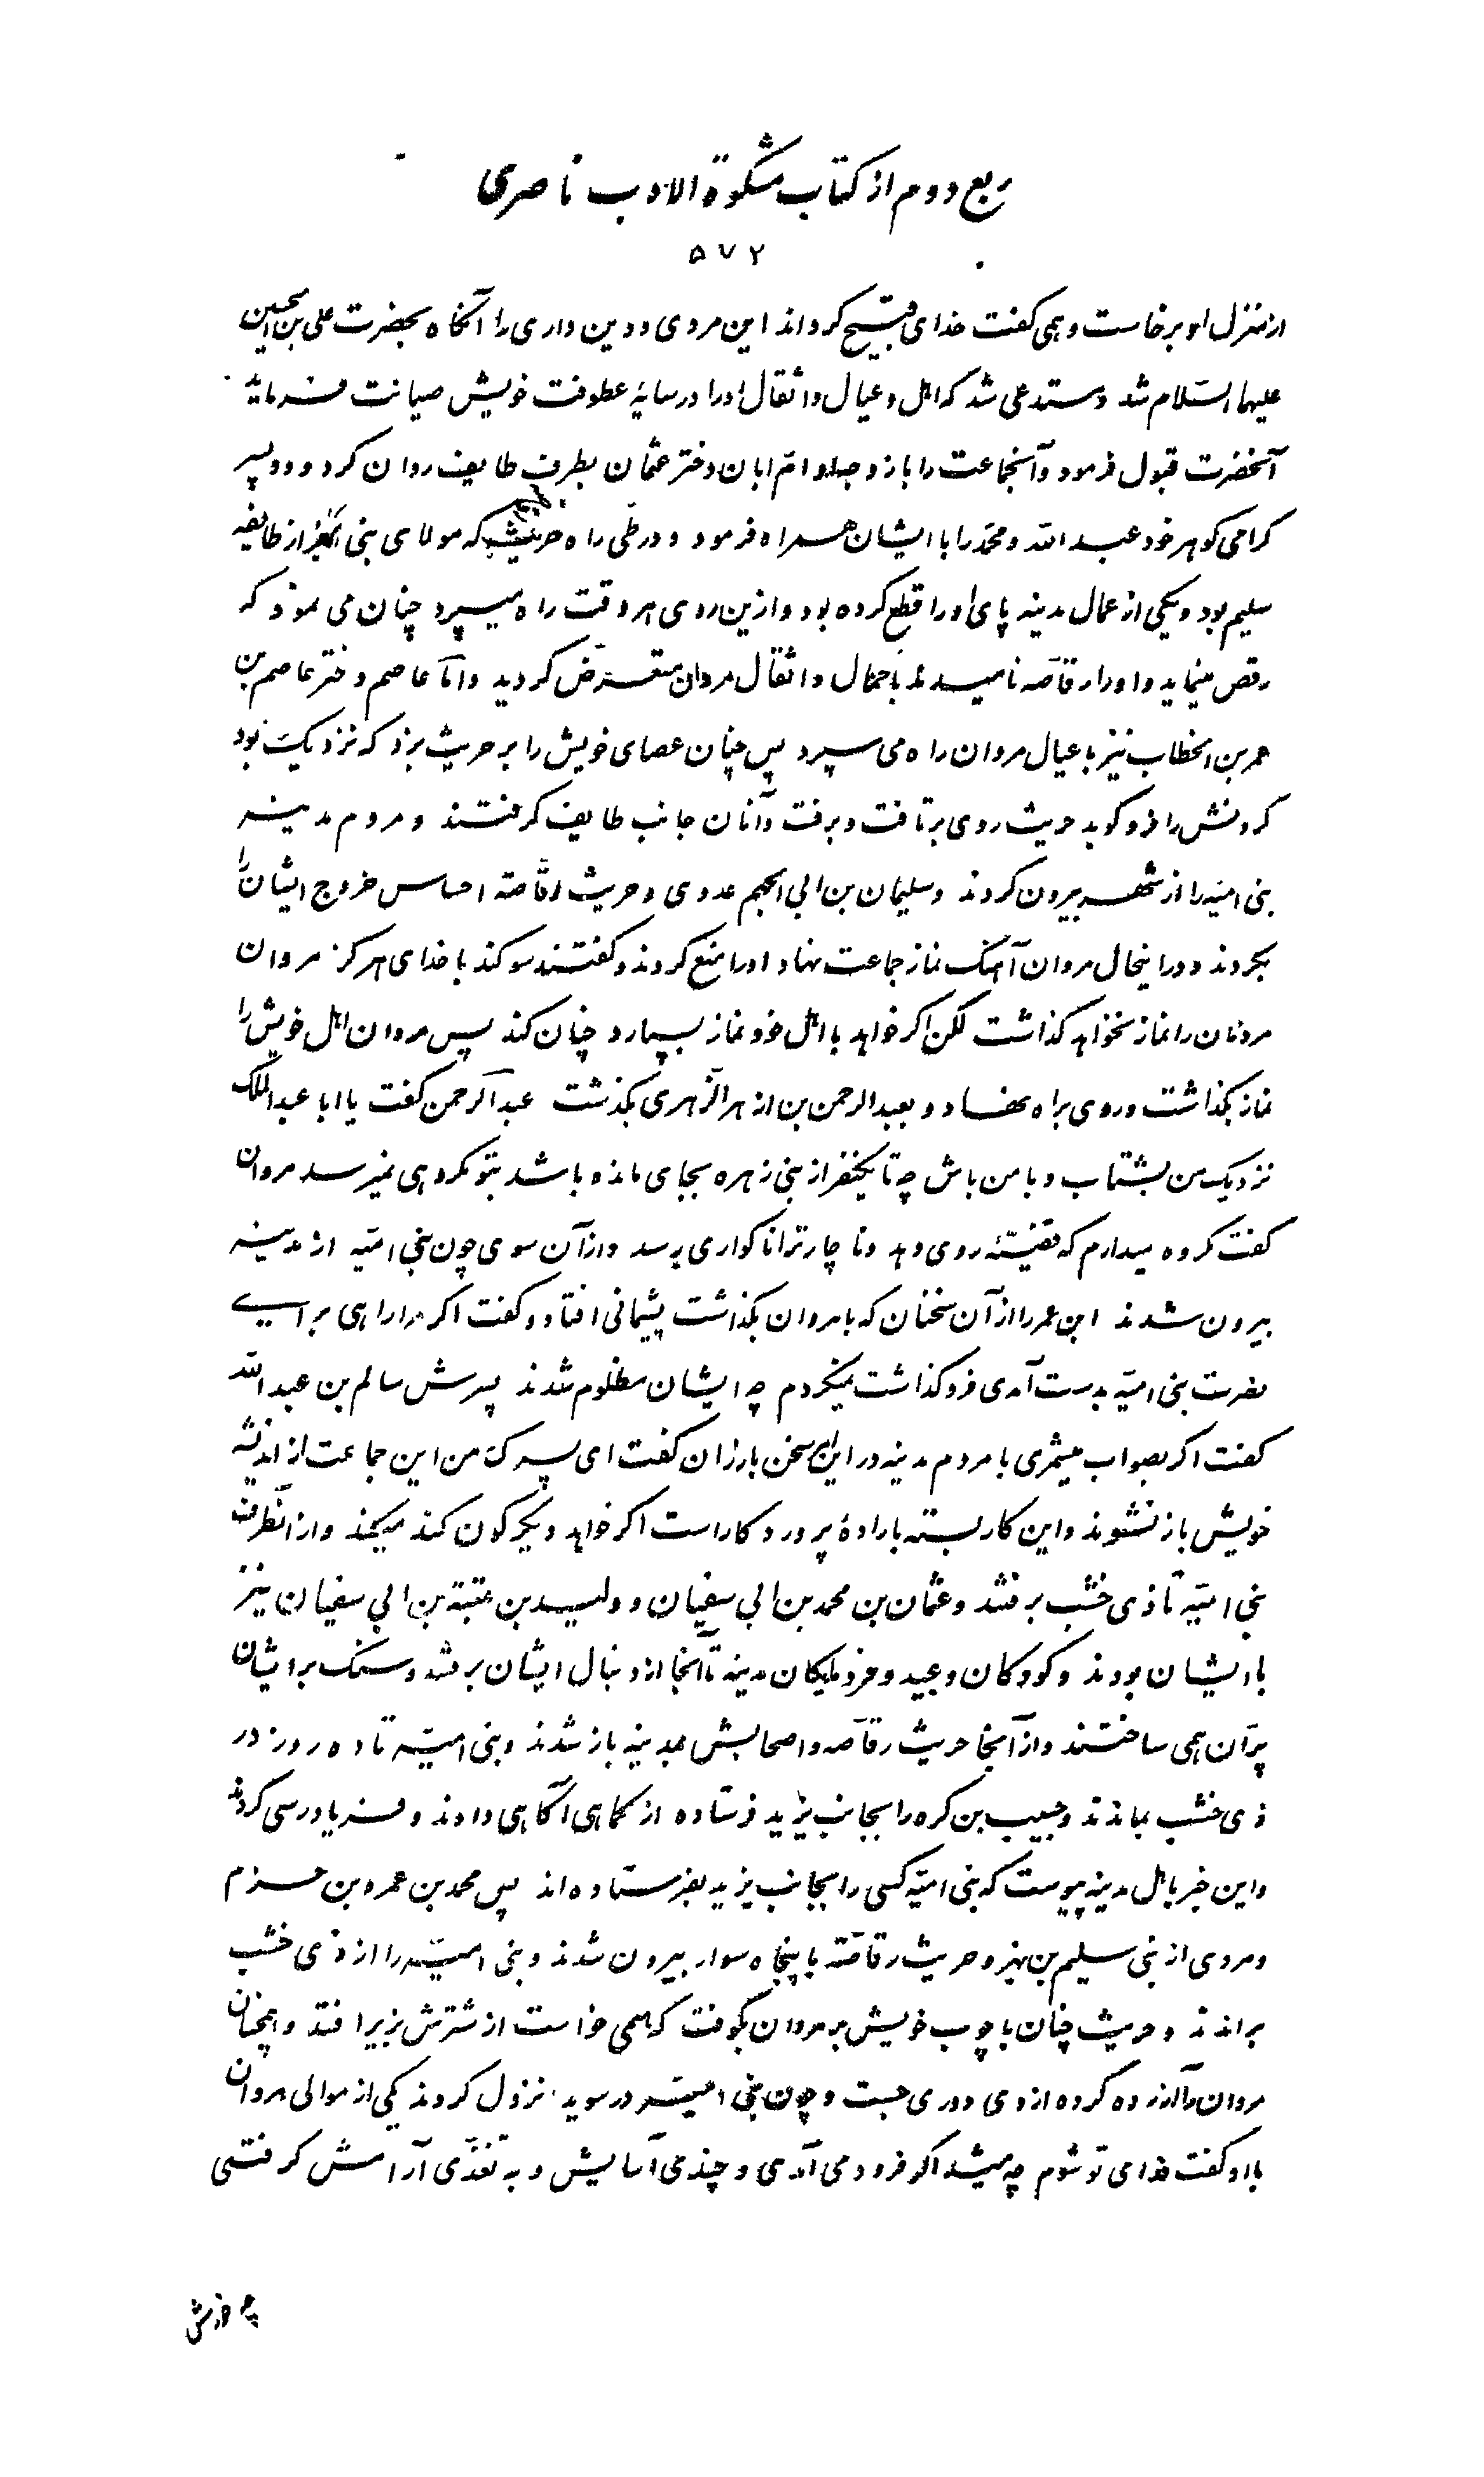 ربع دوم از کتاب مشکوة الادب ناصری
۵۷۲
از منزل او برخاست و همی کفت خدای قبیح کرداند این مردی و دین داری را آنکاه بحضرت علی بن الحسین
علیهما السّلام شد و مستدعی شد که اهل و عیال و اثقال او را در سایهٔ عطوفت خویش صیانت فرماید
آنحضرت قبول فرمود و آنجماعت را با زوجه او امّ ابان دختر عثمان بطرف طایف روان کرد و دو پسر
کرامی کوهر خود عبد اللّه و محمّد را با ایشان همراه فرمود و در طیّ راه حریث که مولای بنی بهز از طایفه
سلیم بود و یکی از عمال مدینه پای او را قطع کرده بود و ازین روی هر وقت راه میسپرد چنان می نمود که
رقص مینماید و او را رقاصّه نامیدند باحمال و اثقال مروان متعرّض کردید و امّ عاصم دختر عاصم بن
عمر بن الخطاب نیز با عیال مروان راه می سپرد پس چنان عصای خویش را بر حریث بزد که نزدیک بود
کردنش را فرو کوبد حریث روی برتافت و برفت و آنان جانب طایف کرفتند و مردم مدینه
بنی امیّه را از شهر بیرون کردند و سلیمان بن ابی الجهم عدوی و حریث رقّاصه احساس خروج ایشان را
بکردند و در اینحال مروان آهنک نماز جماعت نهاد او را منع کردند و کفتند سوکند با خدای هرکز مروان
مردمان را نماز نخواهد کذاشت لکن اکر خواهد با اهل خود نماز بسپارد چنان کند پس مروان اهل خویش را
نماز بکذاشت و روی براه نهاد و بعبد الرحمن بن ازهر الزّهری بکذشت عبد الرحمن کفت یا ابا عبد الملک
نزدیک من بشتاب و با من باش چه تا یکنفر از بنی زهره بجای مانده باشد بتو مکروهی نمیرسد مروان
کفت مکروه میدارم که قضیّهٔ روی دهد و ناچار ترا ناکواری برسد و از آن سوی چون بنی امیّه از مدینه
بیرون شدند ابن عمر را از آن سخنان که با مروان بکذاشت پشیمانی افتاد و کفت اکر مرا راهی برای
نصرت بنی امیّه بدست آمدی فروکذاشت نمیکردم چه ایشان مظلوم شدند پسرش سالم بن عبد اللّه
کفت اکر بصواب میشمری با مردم مدینه در این سخن بازران کفت ای پسرک من این جماعت از اندیشه
خویش باز نشوند و این کار بسته بارادهٔ پروردکار است اکر خواهد دیکرکون کند میکند و از انطرف
بنی امیّه تا ذی خشب برفتند و عثمان بن محمد بن ابی سفیان و ولید بن عتبة بن ابی سفیان نیز
با ایشان بودند و کودکان و عبید و فرومایکان مدینه تا آنجا از دنبال ایشان برفتند و سنک بر ایشان
پرّان همی ساختند و از آنجا حریث رقاصه و اصحابش بمدینه باز شدند و بنی امیّه تا ده روز در
ذی خشب بماندند و حبیب بن کره را بجانب یزید فرستاده از کماهی آکاهی دادند و فریادرسی کردند
و این خبر باهل مدینه پیوست که بنی امیّه کسی را بجانب یزید بفرستاده اند پس محمد بن عمرو بن حزم
و مردی از بنی سلیم بن بهز و حریث رقاصّه با پنجاه سوار بیرون شدند و بنی امیّه را از ذی خشب
براندند و حریث چنان با چوب خویش بر مروان بکوفت که همی خواست از شترش بزیر افتد و همچنان
مروان را آزرده کرده از وی دوری جست و چون بنی امیّه در سویدا نزول کردند یکی از موالی مروان
با او کفت فدای تو شوم چه میشد اکر فرود می آمدی و چندی آسایش و به تغذّی آرامش کرفتی